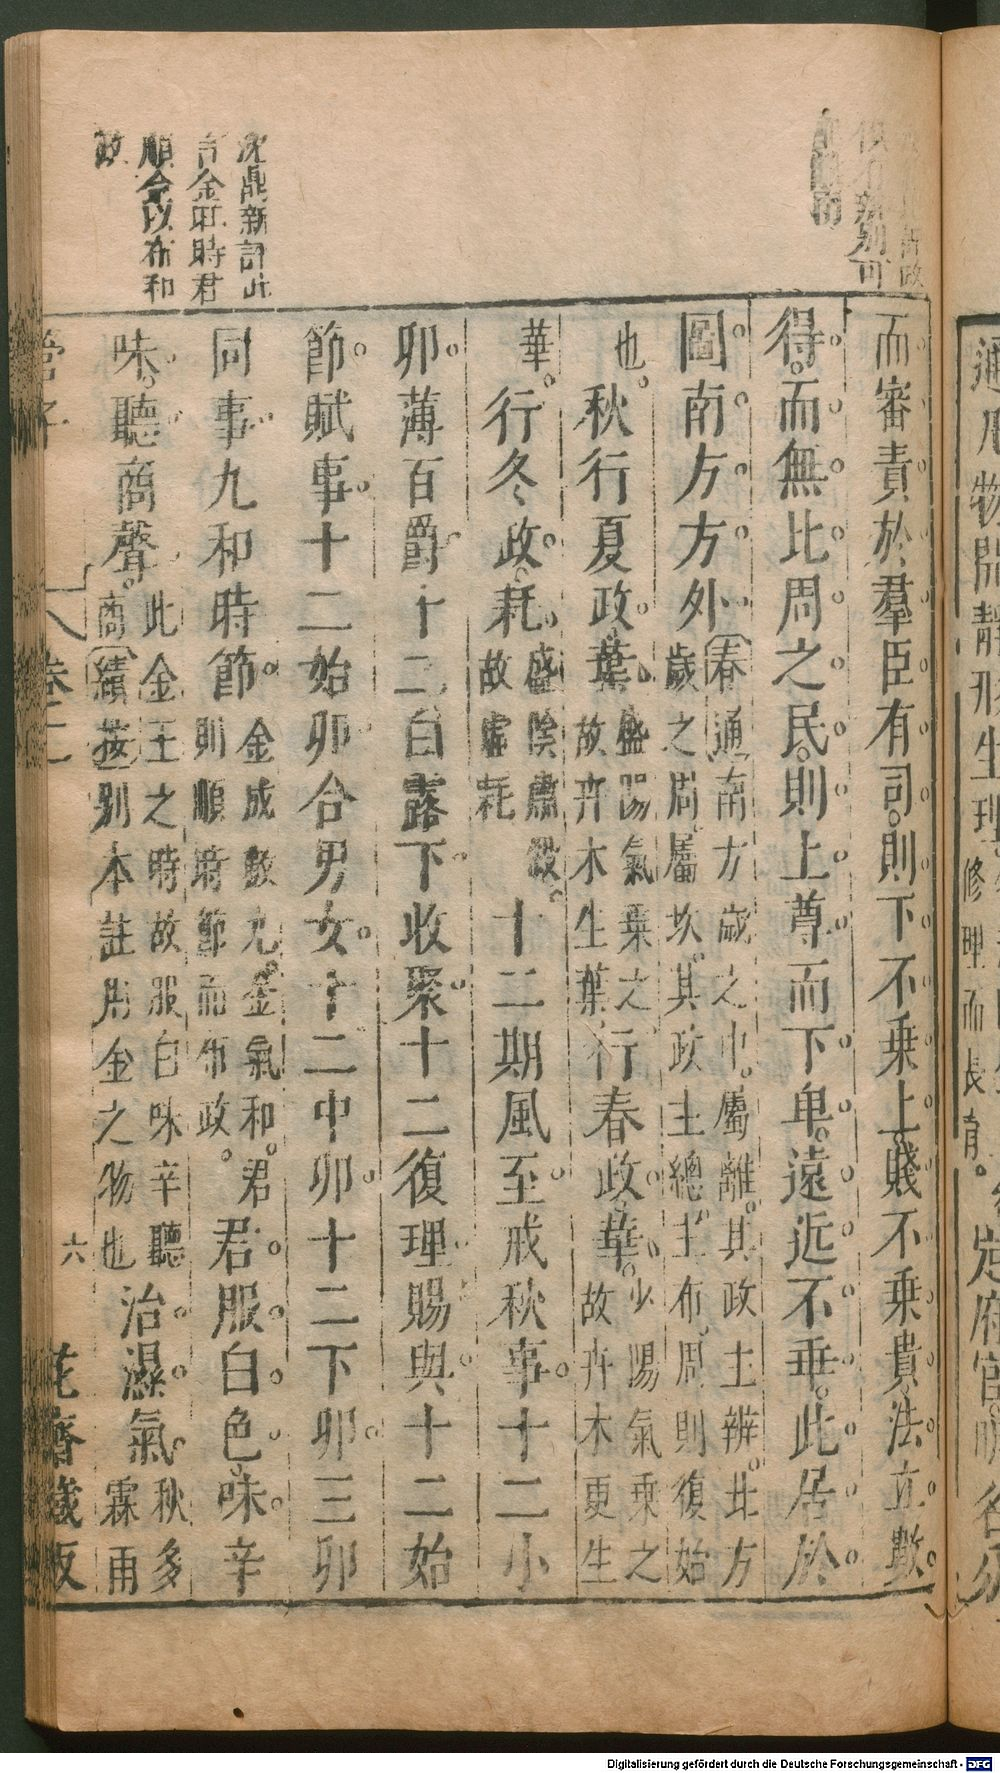 俱有辨別可
沈鼎新評此
言金旺時君
順令以布和
政
而審責於羣臣有司則下不乘上賤不乘貴法立數
得而無比周之民則上尊而下卑遠近不乖此居於
圖南方方外春通南方歲之中屬離其政主辨北方
歲之周屬坎其政主總主布周則復始
也秋行夏政葉盛陽氣乘之
故卉木生葉行春政華少陽氣乘之
故卉木更生
華行冬政耗盛陰肅殺
故虛耗十二期風至戒秋事十二小
卯薄百爵十二白露下收聚十二復理賜與十二始
節賦事十二始卯合男女十二中卯十二下卯三卯
同事九和時節金成數九金氣和君
則順時節而布政君服白色味辛
味聽商聲此金王之時故服白味辛聽
商續按別本註用金之物也治濕氣秋多
霖雨
管子
卷三
六
花齋藏版
通凡物開靜形生理
修理而長育
定府官明名分
Digitalisierung gefördert durch die Deutsche Forschungsgemeinschaft - DFG